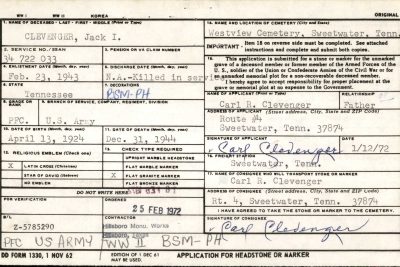 WW I WW II KOREA ORIGINAL
1. NAME OF DECEASED - LAST - FIRST - MIDDLE (Print or Type)
CLEVENGER, Jack I.
14. NAME AND LOCATION OF CEMETERY (City and State)
Westview Cemetery, Sweetwater, Tenn.
2. SERVICE NO./SSAN
34 722 033
3. PENSION OR VA CLAIM NUMBER
IMPORTANT: Item 18 on reverse side must be completed. See attached instructions and complete and submit both copies.
Feb. 23, 1943
N.A.-Killed in servi
This application is submitted for a stone or marker for the unmarked grave of a deceased member or former member of the Armed Forces of the U.S., soldier of the Union or Confederate Armies of the Civil War or for an unmarked memorial plot for a non-recoverable deceased member.
I hereby agree to accept responsibility for proper placement at the grave or memorial plot at no expense to the Government.
STATE
Tennessee
DECORATIONS
BSM-PH
Carl R. Clevenger
RELATIONSHIP
Father
GRADE OR RANK
SERVICE OR COMPANY, REGIMENT, DIVISION
PFC. U.S. Army
ADDRESS OF APPLICANT (Street address, City, State and ZIP Code)
Route #4
Sweetwater, Tenn. 37874
10. DATE OF BIRTH (Month, Day, Year)
April 13, 1924
11. DATE OF DEATH (Month, Day, Year)
Dec. 31, 1944
SIGNATURE OF APPLICANT
Carl Clevenger
DATE
1/12/72
RELIGIOUS EMBLEM (Check one)
CHECK TYPE REQUIRED
UPRIGHT MARBLE HEADSTONE
X LATIN CROSS (Christian)
FLAT MARBLE MARKER
STAR OF DAVID (Hebrew)
X FLAT GRANITE MARKER
NO EMBLEM
FLAT BRONZE MARKER
FREIGHT STATION
Sweetwater, Tenn.
NAME OF CONSIGNEE WHO WILL TRANSPORT STONE OR MARKER
Carl R. Clevenger
DO NOT WRITE HERE
ORDERED
25 FEB 1972
ADDRESS OF CONSIGNEE (Street, City, State and ZIP Code)
Rt. 4, Sweetwater, Tenn. 37874
I HAVE AGREED TO TAKE THE STONE OR MARKER TO THE CEMETERY.
B/L
Z-5785290
SIGNATURE OF CONSIGNEE
Carl Clevenger
PFC US ARMY WW II BSM-PH
DD FORM 1330, 1 NOV 62
EDITION OF 1 DEC 61 MAY BE USED.
APPLICATION FOR HEADSTONE OR MARKER